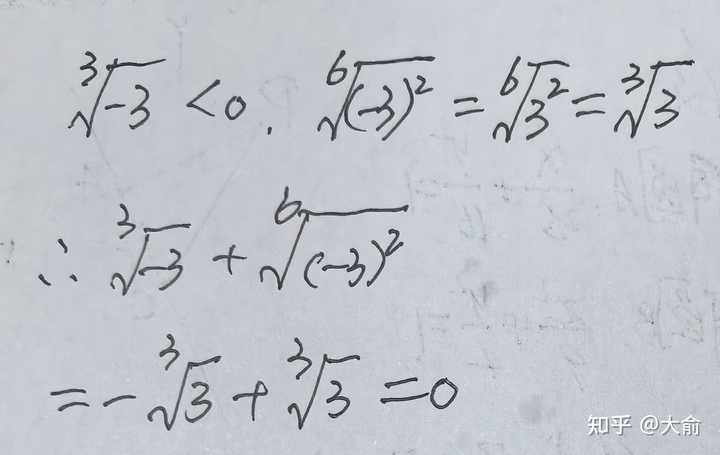 ∛-3 < 0. ⁶√(-3)² = ⁶√3² = ∛3
∴ ∛-3 + ⁶√(-3)²
= -∛3 + ∛3 = 0
知乎 @大俞